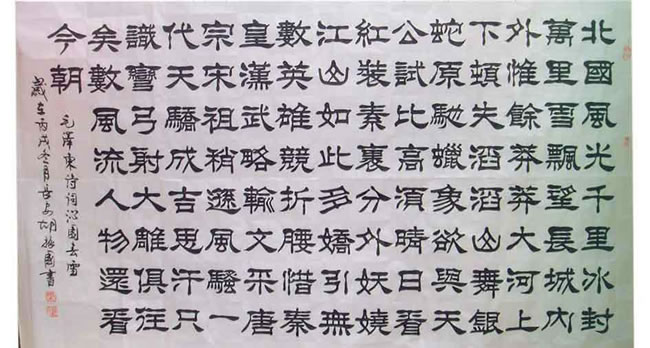 北國風光千里冰封
萬里雪飄望長城內
外惟餘莽莽大河上
下頓失滔滔山舞銀
蛇原馳蠟象欲與天
公試比高須晴日看
紅裝素裹分外妖嬈
江山如此多嬌引無
數英雄競折腰惜秦
皇漢武略輸文采唐
宗宋祖稍遜風騷一
代天驕成吉思汗只
識彎弓射大雕俱往
矣數風流人物還看
今朝
毛澤東詩詞沁園春雪
歲在丙戌冬月長安胡國書